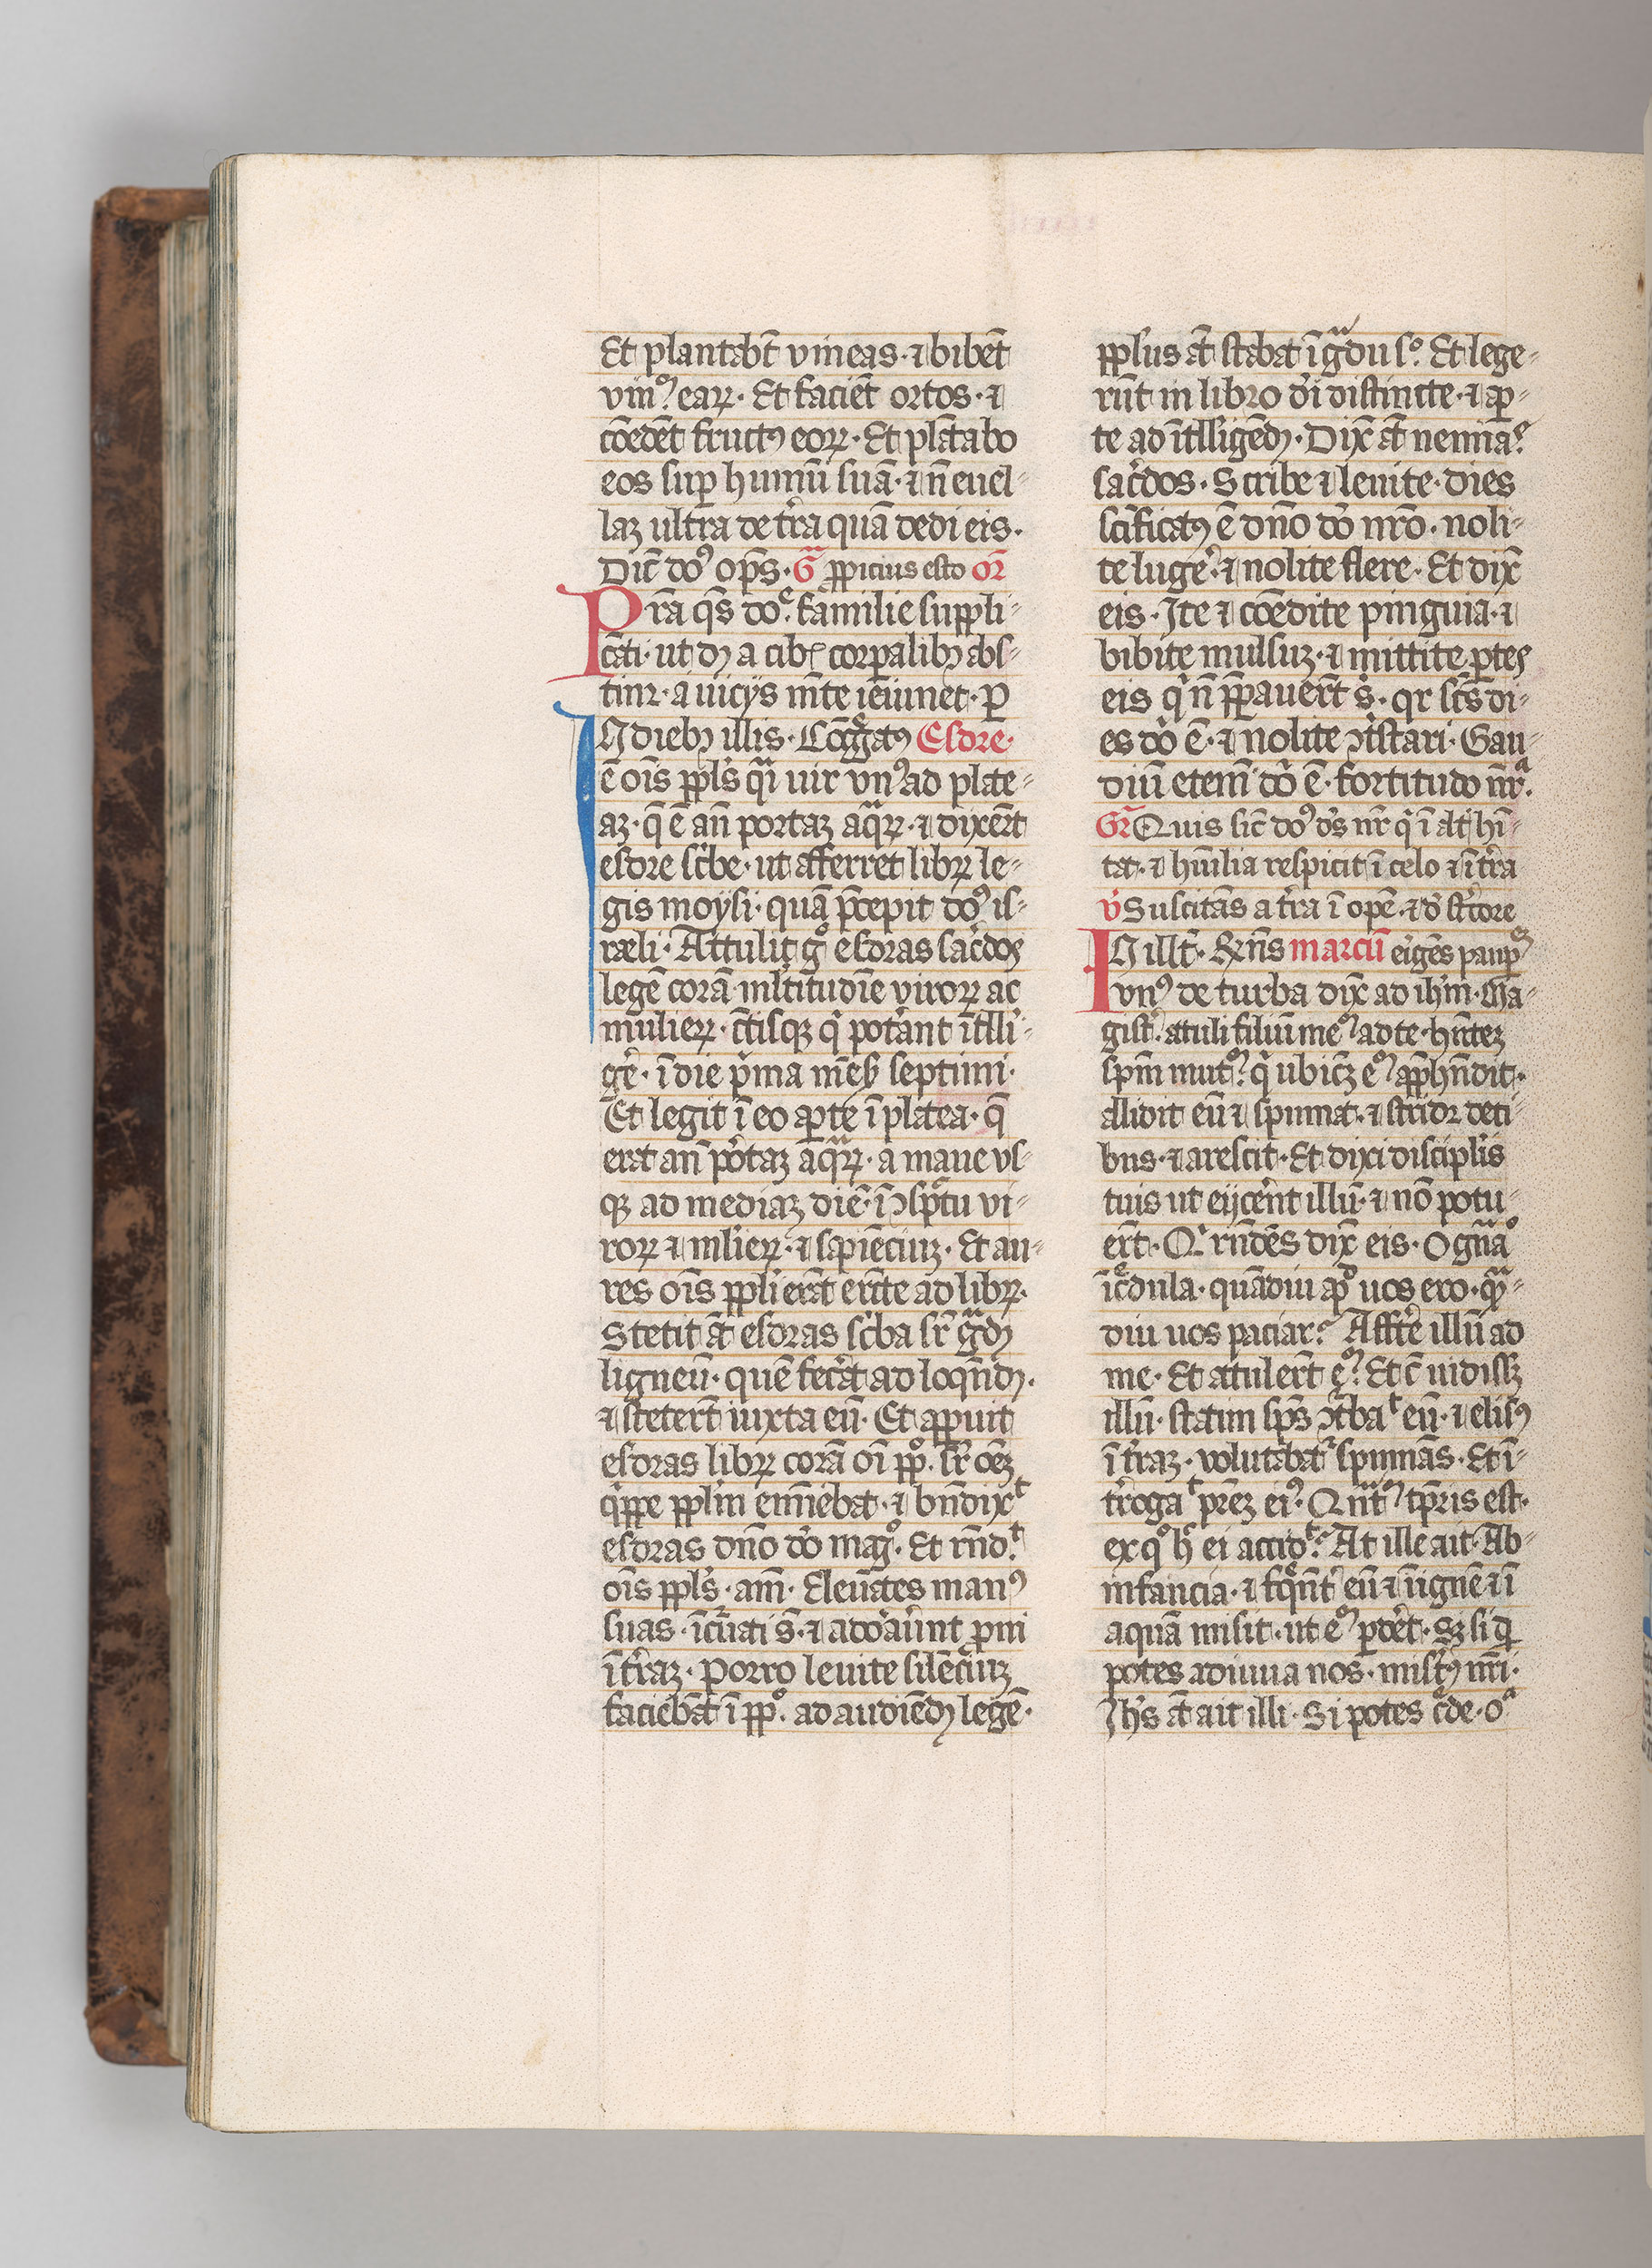 Et plantabt̄ vineas · ⁊ bibēt
vinꝰ eaꝝ · Et faciēt ortos · ⁊
cōedēt fructꝰ eoꝝ · Et plātabo
eos sup̱ humū suā · ⁊ n̄ euel-
laꝫ ultra de tr̄a quā dedi eis ·
Dic̄ do᷒ op̄s · Gͣ ꝓpicius esto or̄
Pr̄a qs̄ doͤ · familie suppli-
cāti · ut qꝫ a cibꝭ corpalibꝫ abs-
tinꝛ · a uicijs mn̄te ieiunet · ꝑ
In diebꝫ illis · Cōg̃atꝰ Esdre ·
ē oīs ppl̄s qͣi uir vnꝰ ad plate-
aꝫ · q̄ ē an̄ portaꝫ aqͣꝝ · ⁊ dixer̄t
esdre sc̄be · ut afferret libꝝ le-
gis moysi · quā p̄cepit do᷒ is-
raeli · Attulit gͦ esdras sac̄dos
legē corā ml̄titudīe viroꝝ ac
mulieꝝ · cū̄tisqꝫ q̇ poter̄ant ītelli-
ger̄e · ī die p̄ma mēs septimi ·
Et legit ī eo aꝑte ī platea · q̄
erat an̄ por̄taꝫ aqͣꝝ · a mane us-
qꝫ ad mediaꝫ diē · ī ꝯspc̄tu vi-
roꝝ ⁊ ml̄ieꝝ · ⁊ sapiēciuꝫ · Et au-
res oīs ppl̄i erāt erc̄te ad libꝝ ·
Stetit āt esdras sc̄ba sr̄ gͣdꝫ
ligneū · quē fecāt ad loqn̄dꝫ ·
⁊ stetert̄ iuxta eū · Et appuit
esdras libꝝ corā oī ppͦ · sr̄ oēꝫ
q̇ppe ppl̄m emīebat · ⁊ bn̄dixͭ
esdras dn̄o dō magͦ · Et rn̄dͭ
oīs ppl̄s · am̄ · Eleuātes manꝰ
suas · īcͥuati s̄ · ⁊ adoāuͥnt ꝓni
ī tr̄aꝫ · Porro leuite silēciuꝫ
faciebāt ī ppͦ · ad audiēdꝫ legē ·
pplus āt stabat ī gͣdu sͦ · Et lege-
rūt in libro di̇ distincte · ⁊ aꝑ-
te ad ītll̄igēdꝫ · Dix̄ āt neemias
sac̄dos · Scribe ⁊ leuite · dies
scīficatꝰ ē dn̄o dō nr̄o · noli-
te luger̄e · ⁊ nolite flere · Et dix̄
eis · Ite ⁊ cōedite pinguia · ⁊
bibite mulsuꝫ · ⁊ mittite ꝑtes
eis q̇ n̄ ꝑpauert̄ s̄ · qꝛ sc̄s di-
es dō ē · ⁊ nolite ꝯtͥstari · Gau-
diū eteni̅ dō ē · fortitudo nr̄ͣ ·
Gr̄ Quis sic̄ do᷒ ds̄ nr̄ q̇ ī alt̄ hī-
tat · ⁊ hūilia respicit ī celo ⁊ ī tr̄a
v̇ Suscitās a tr̄a ī opē · ⁊ d̄ stc̄ore
In illt̄ · Rn̄s marcū eigēs paupe
vnꝰ de turba dix̄ ad ih̄m · Ma-
gist̄ · atuli filiū meꝰ ad te · hn̄teꝫ
spm̄ mutꝰ · q̇ ubicūꝫ eꝰ app̄hn̄dit ·
allidit eū ⁊ spumat · ⁊ stridꝛ deti-
bus · ⁊ arescit · Et dixi discipl̄is
tuis ut eijcer̄nt illū · ⁊ nō potu-
ert̄ · Qͥ rn̄dēs dix̄ eis · O gn̄aͦ
īcͤdula · quādiu apͩ uos ero · qͣ-
diu uos paciar · Affer̄te illū ad
me · Et atulert̄ eꝰ · Et c̄ uidissꝫ
illū · statim sps̄ ꝯtbaͭ eū · ⁊ elisꝰ
ī tr̄aꝫ · volutabatͬ spumās · Et ī-
tr̄rogaͭ pr̄eꝫ ei᷒ · Qn̄tꝰ tp̄ris est ·
ex qͦ hͨ ei accidͭ · At ille ait · Ab-
infancia · ⁊ fqͤnt̄ eū ⁊ ī ignē ⁊ ī
aquā misit · ut eꝰ ꝑder̄t · Sꝫ si qͥ
potes adiuua nos · mist̄ꝰ nr̄i ·
Ihs̄ āt ait illi · Si potes cͤde · oͣ